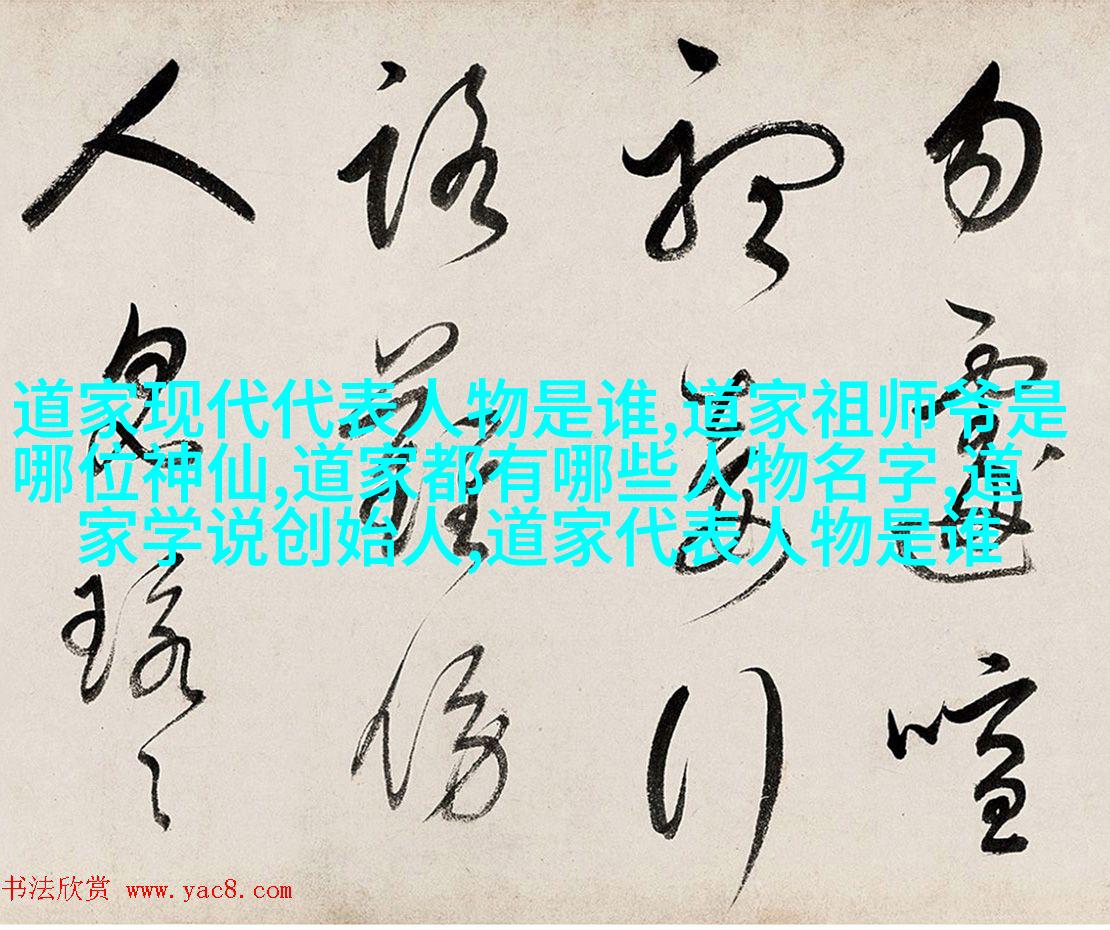 道家现代代表人物是谁,道家祖师爷是
哪位神仙,道家都有哪些人物名字,道
家学说创始人,道家代表人物是谁
勿遽喧
莫行
路難傍
人
书法欣赏 www.yac8.com